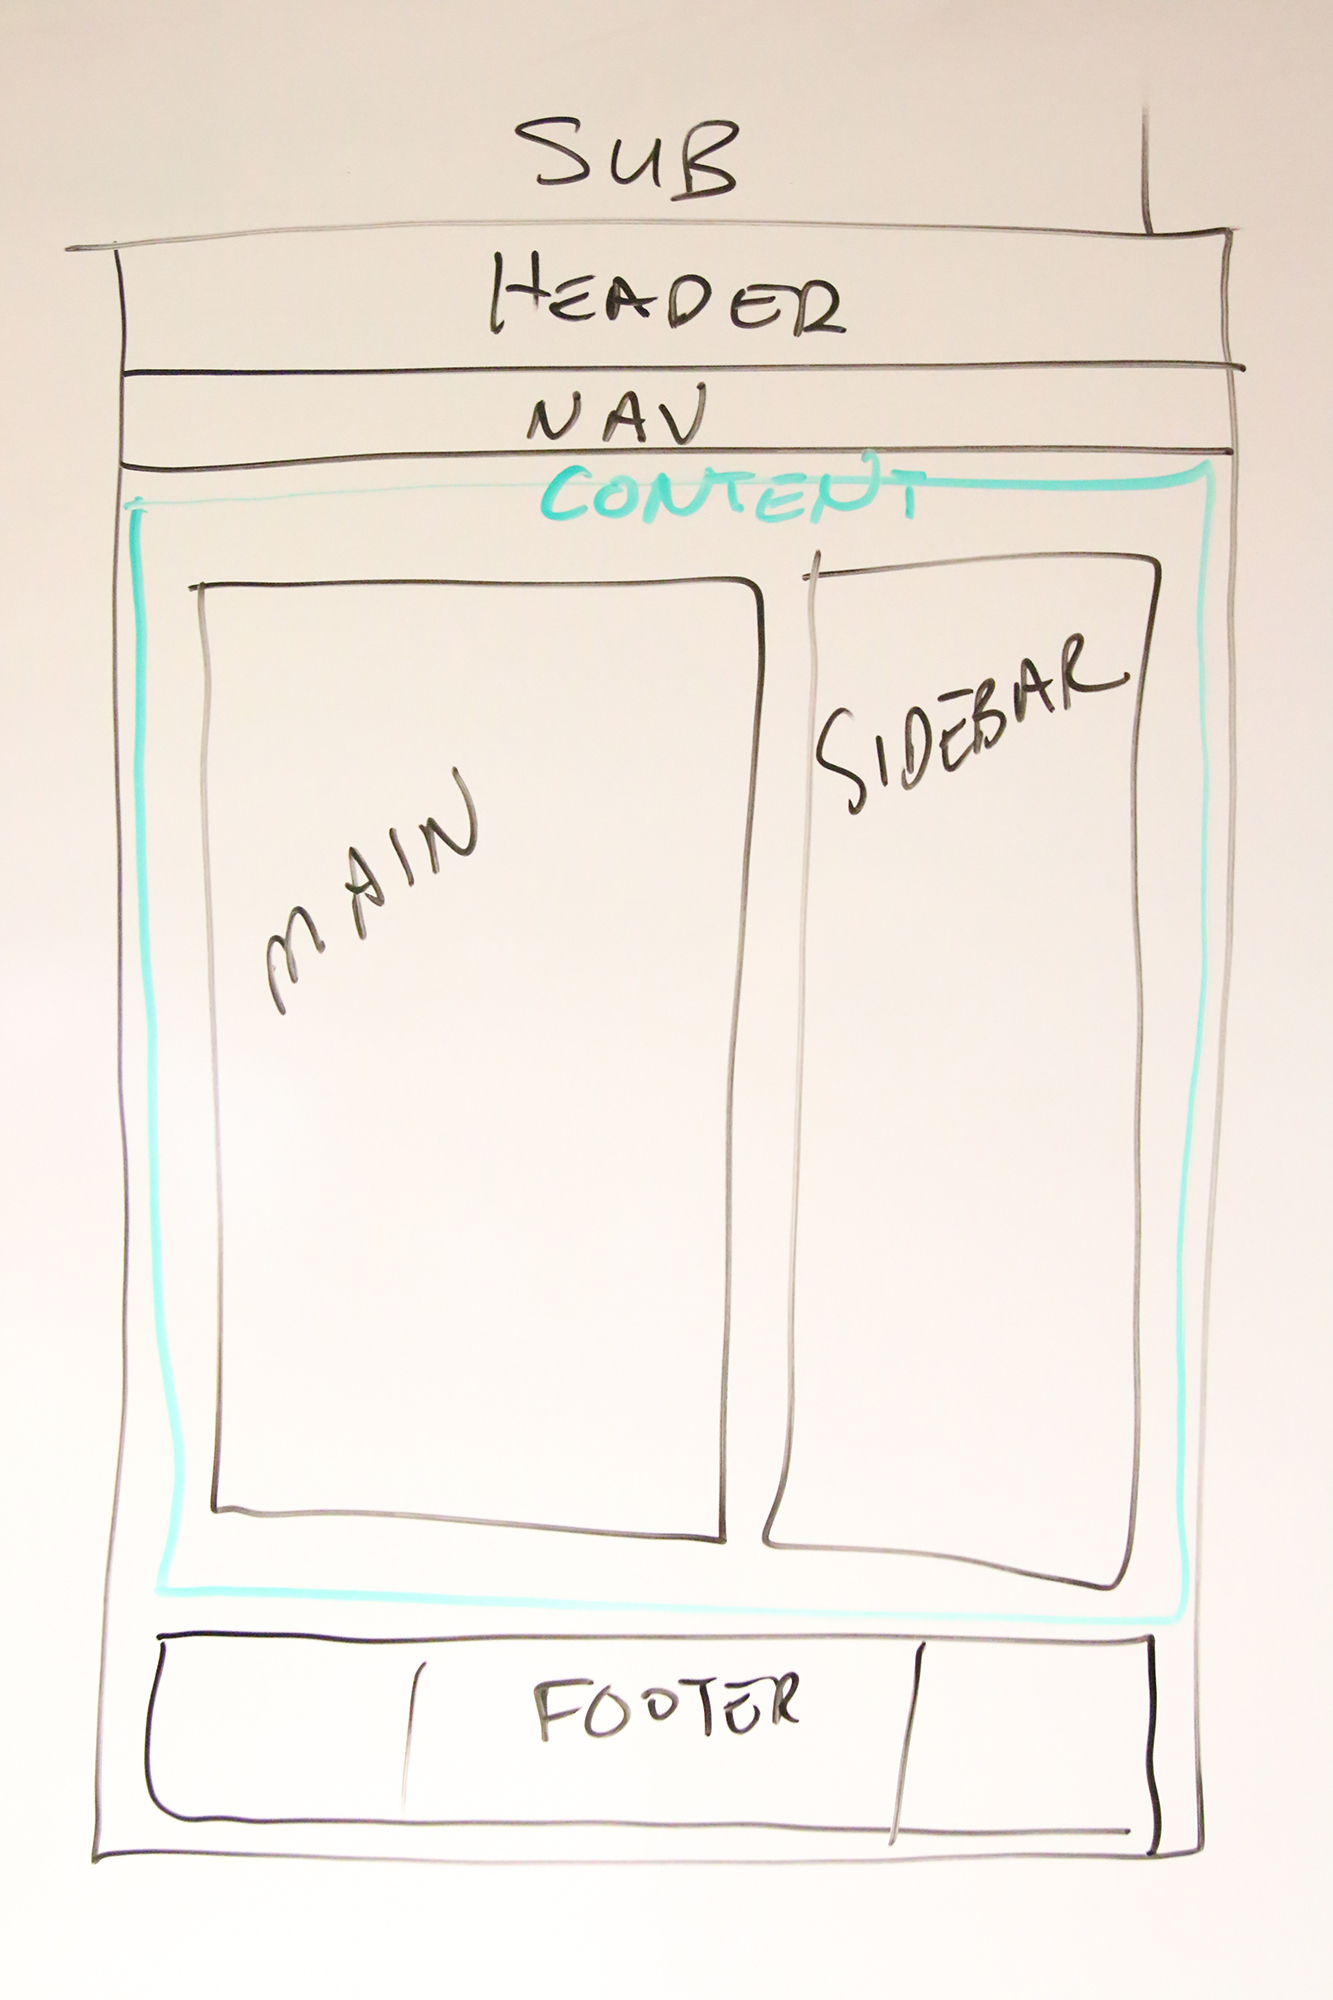 SUB
HEADER
NAV
CONTENT
MAIN
SIDEBAR
FOOTER